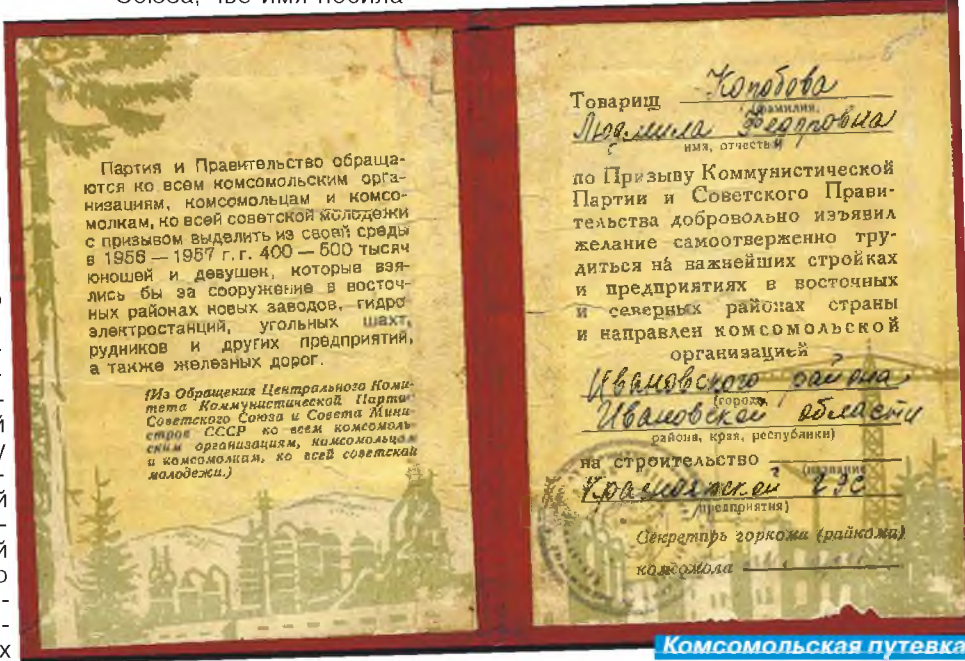 Союза, чье имя носила
Партия и Правительство обраща-
ются ко всем комсомольским орга-
низациям, комсомольцам и комсо-
молкам, ко всей советской молодежи
с призывом выделить из своей среды
в 1956 — 1957 г. г. 400 — 500 тысяч
юношей и девушек, которые взя-
лись бы за сооружение в восточ-
ных районах новых заводов, гидро
электростанций, угольных шахт,
рудников и других предприятий,
а также железных дорог.
(Из Обращения Центрального Коми-
тета Коммунистической Партии
Советского Союза и Совета Мини-
стров СССР ко всем комсомоль-
ским организациям, комсомольцам
и комсомолкам, ко всей советской
молодежи.)
Товарищ
(фамилия,
Людмила Федоровна
имя, отчество)
по Призыву Коммунистической
Партии и Советского Прави-
тельства добровольно изъявил
желание самоотверженно тру-
диться на важнейших стройках
и предприятиях в восточных
и северных районах страны
и направлен комсомольской
организацией
Ивановского района
(города,
Ивановской области
района, края, республики)
на строительство
(название
Красноярской ГЭС
предприятия)
Секретарь горкома (райкома)
комсомола
Комсомольская путевка